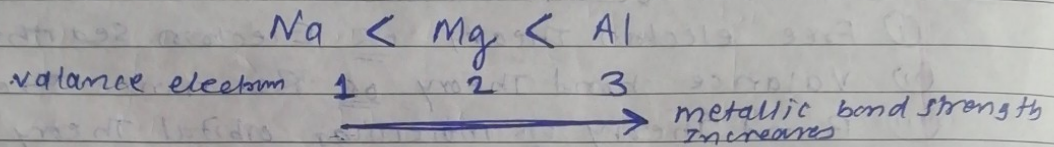 Na < Mg < Al
valance electron 1 2 3
metallic bond strength
Increases